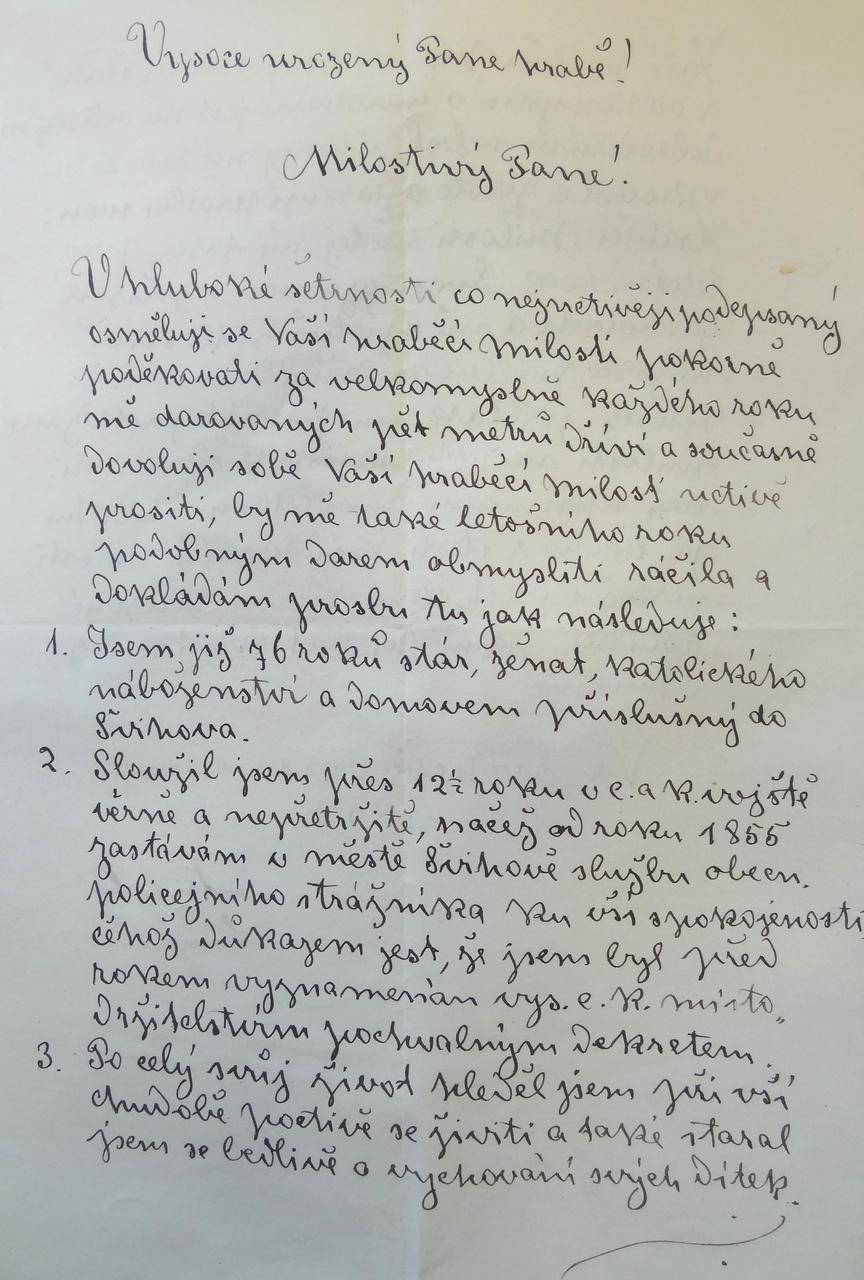 Vysoce urozený Pane hrabě!
Milostivý Pane!
V hluboké šetrnosti co nejuctivěji podepsaný
osměluji se Vaší hraběcí milosti pokorně
poděkovati za velkomyslně každého roku
mě darovaných pět metrů dříví a současně
dovoluji sobě Vaší hraběcí milosť uctivě
prositi, by mě také letošního roku
podobným darem obmysliti ráčila a
dokládám prosbu tu jak následuje:
1. Jsem již 76 roků stár, ženat, katolického
náboženství a domovem příslušný do
Švihova.
2. Sloužil jsem přes 12½ roku v c. a k. vojště
věrně a nepřetržitě, načež od roku 1855
zastávám v městě Švihově službu obecn.
policejního strážníka ku vší spokojenosti
čehož důkazem jest, že jsem byl před
rokem vyznamenán vys. c. k. místo„
držitelstvím pochvalným dekretem.
3. Po celý svůj život hleděl jsem při vší
chudobě poctivě se živiti a také staral
jsem se bedlivě o vychování svých dítek.